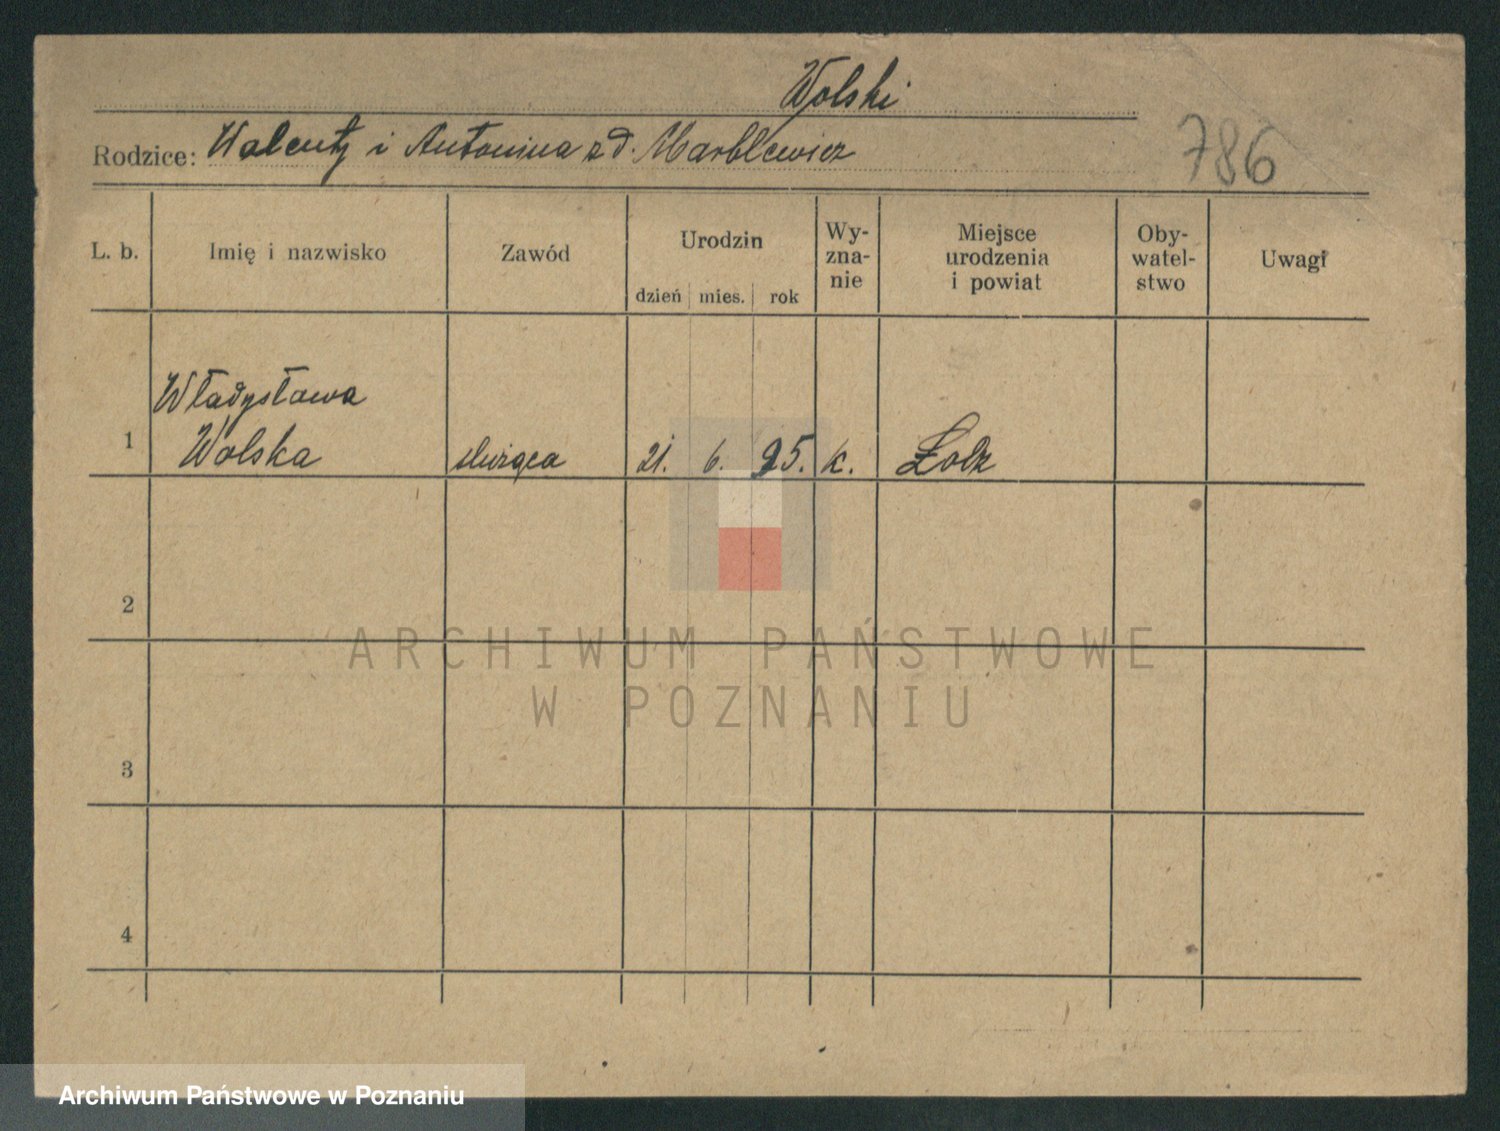 Wolski
Rodzice: Walenty i Antonina z d. Marblewicz
786
L. b. Imię i nazwisko Zawód Urodzin dzień mies. rok Wy-zna-nie Miejsce urodzenia i powiat Oby-watel-stwo Uwagi
Władysława
1 Wolska służąca 21. 6. 95. k.
2
3
4
ARCHIWUM PAŃSTWOWE
W POZNANIU
Archiwum Państwowe w Poznaniu